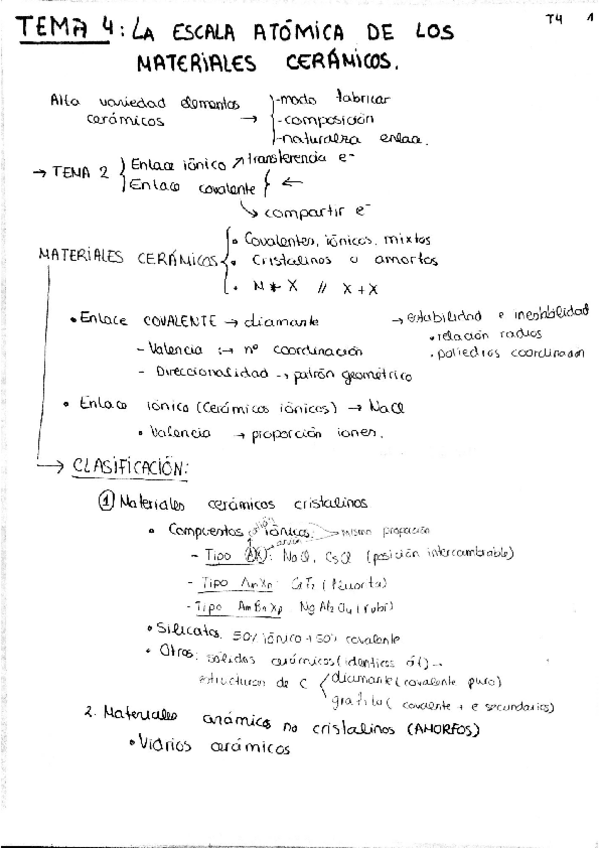 T4 1
TEMA 4: LA ESCALA ATÓMICA DE LOS
MATERIALES CERÁMICOS.
Alta variedad elementos
cerámicos →
-modo fabricar
-composición
-naturaleza enlace.
→ TEMA 2
Enlace iónico ↗ transferencia e⁻
Enlace covalente ←
↳ compartir e⁻
MATERIALES CERÁMICOS
• Covalentes, iónicos, mixtos
• Cristalinos o amorfos
• M + X // X + X
• Enlace COVALENTE → diamante
- Valencia → nº coordinación
- Direccionalidad → patrón geométrico
→ estabilidad e inestabilidad
• relación radios
• poliedros coordinación
• Enlace iónico (Cerámicos iónicos) → NaCl
• Valencia → proporción iones.
→ CLASIFICACIÓN:
① Materiales cerámicos cristalinos
• Compuestos iónicos: misma proporción
- Tipo AX: NaCl, CsCl (posición intercambiable)
- Tipo AmXp:
- Tipo AmBnXp
• Silicatos: 50% iónico + 50% covalente
• Otros: sólidos cerámicos (identicos
estructuras de C
diamante (covalente puro)
grafito ( covalente + e secundarios)
2. Materiales cerámico no cristalinos (AMORFOS)
• Vidrios cerámicos